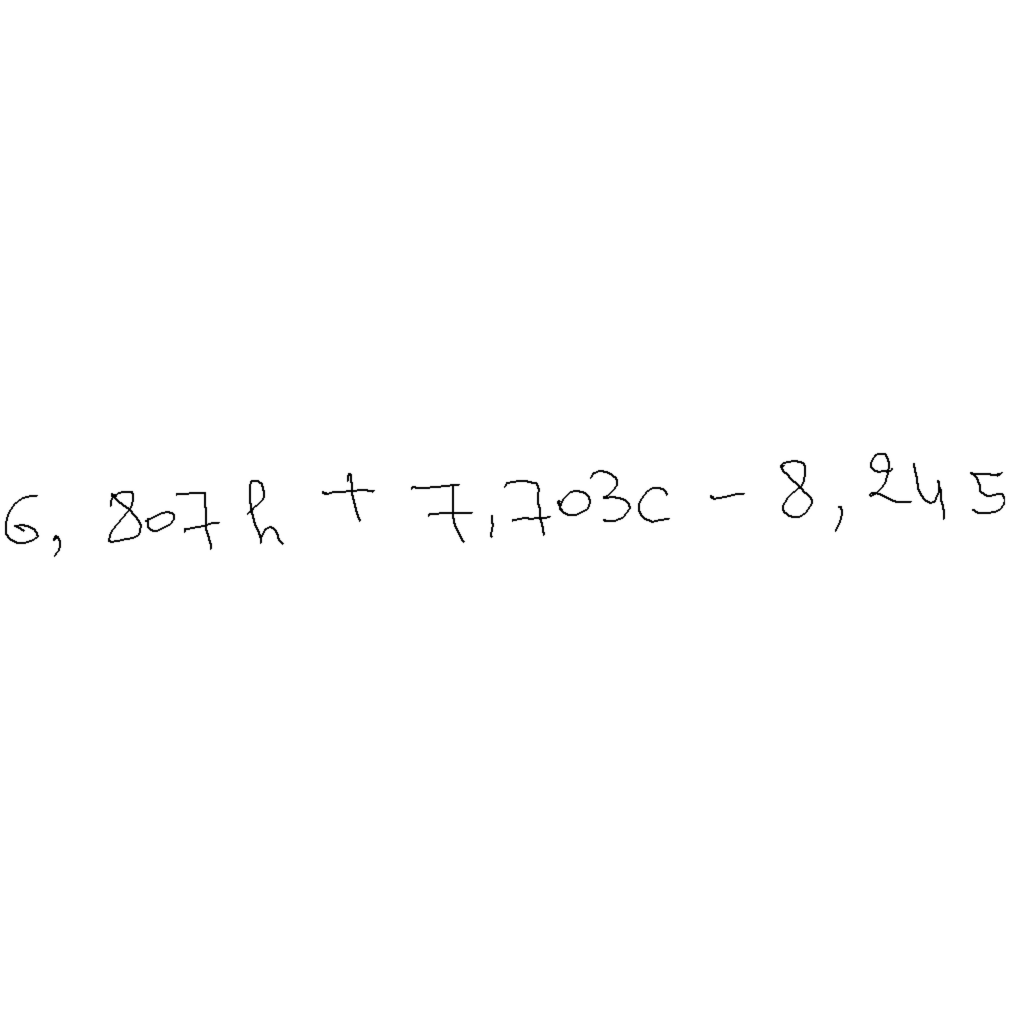 6,807h + 7,703c - 8,245